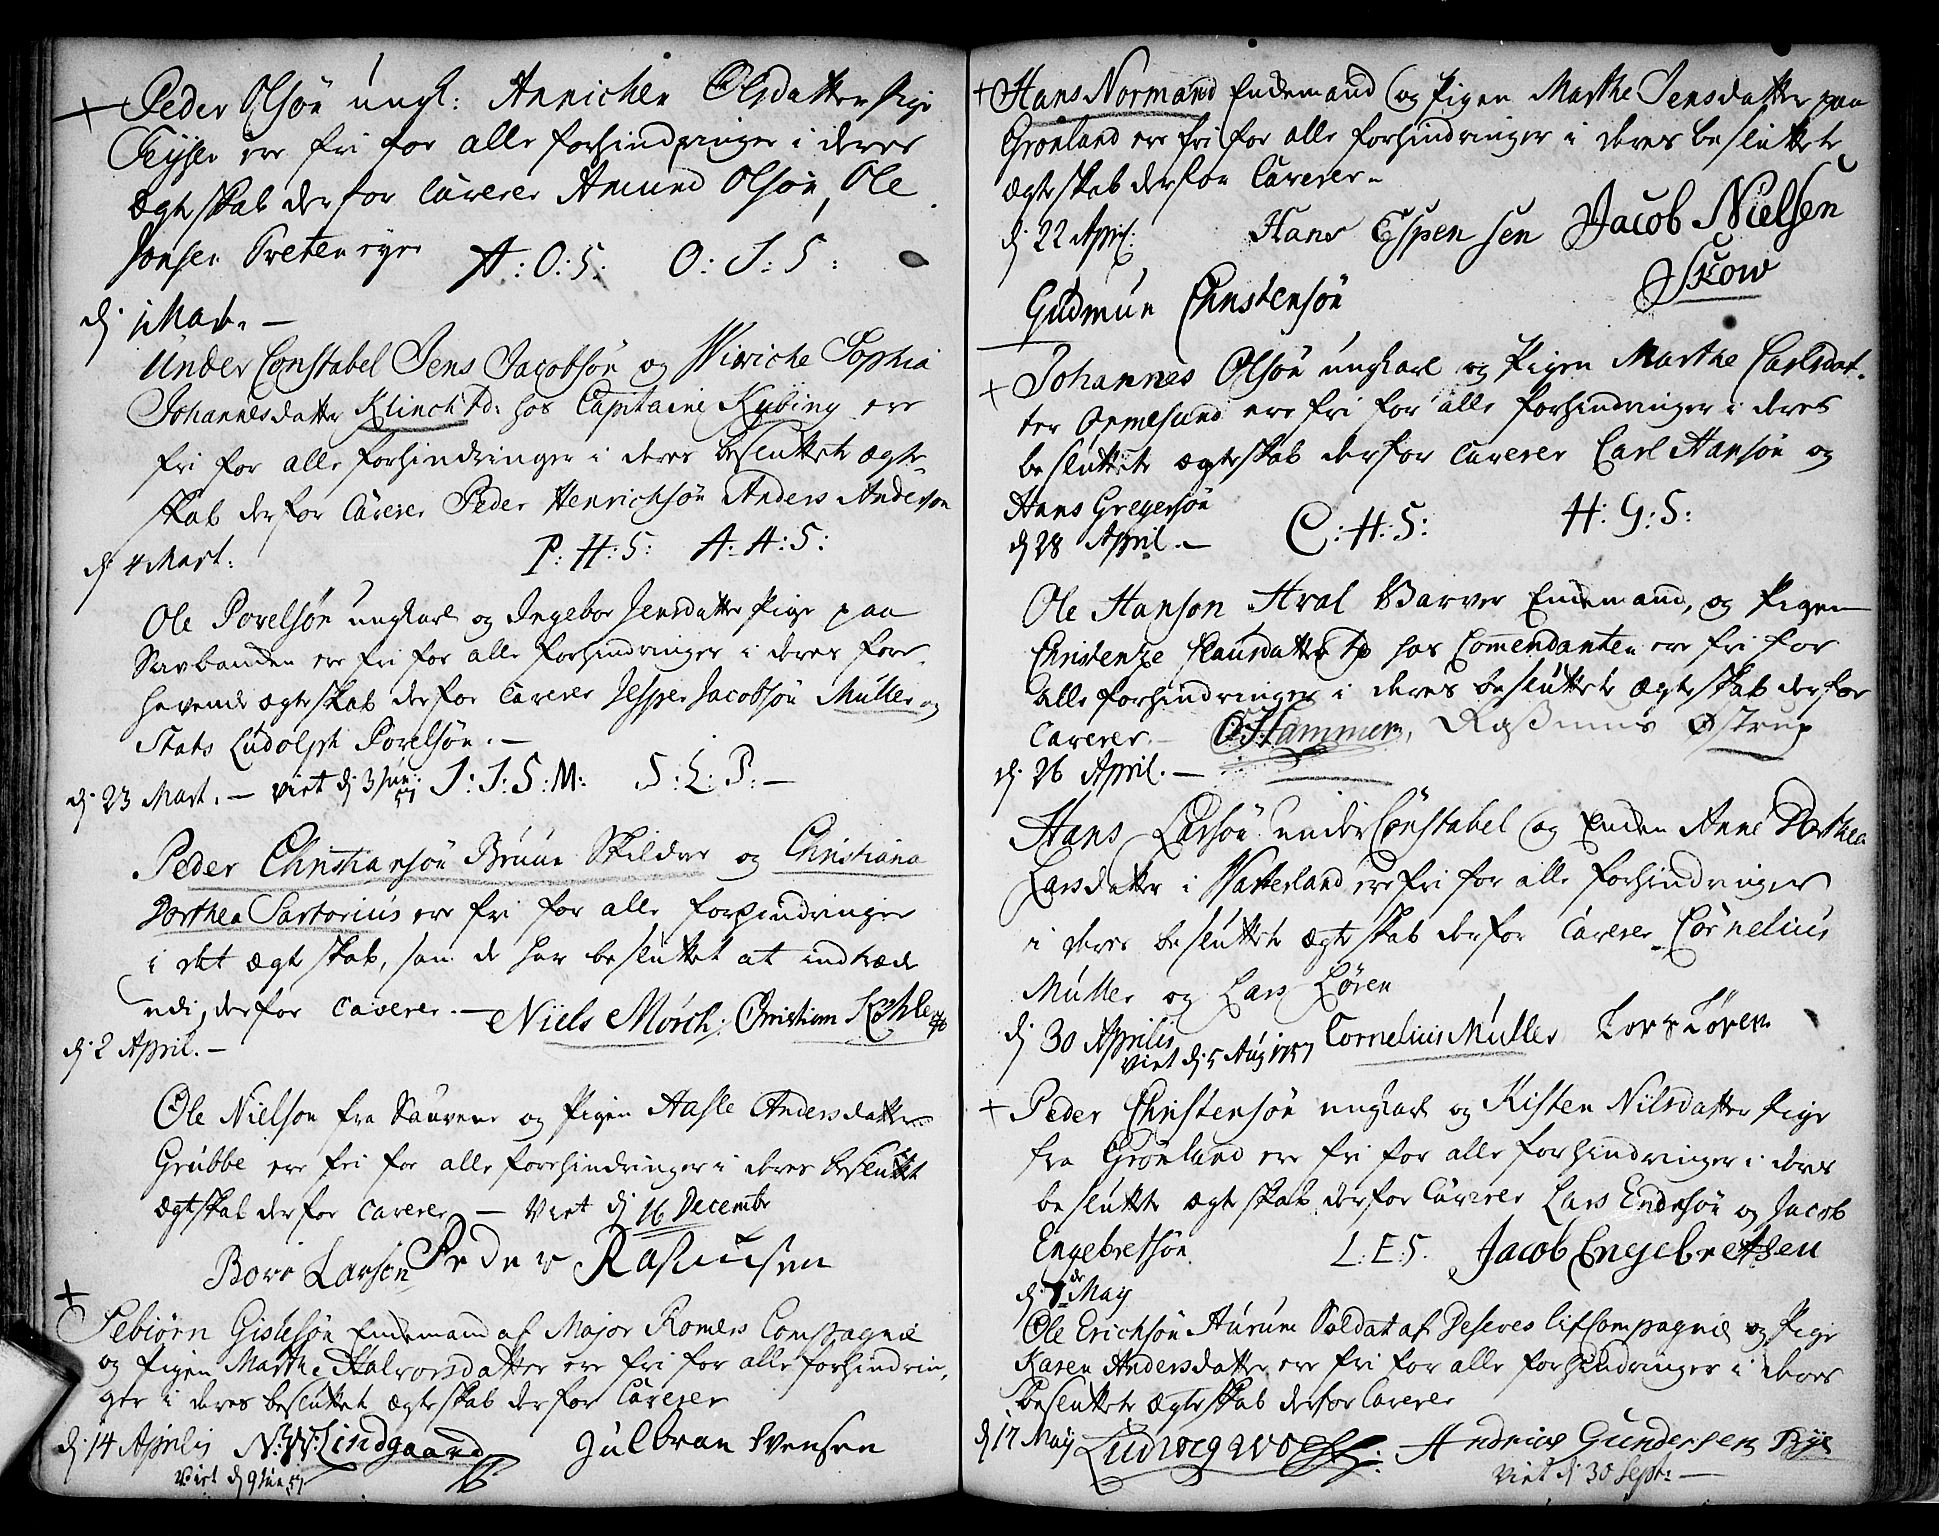 Peder Olsøn ungk: Annichen Olsdatter Pige
Teysen ere fri for alle forhindringer i deres
ægteskab derfor Caverer Amund Olsøn, Ole
Jonsen A:O:S: O:J:S:
d: 1 Mart. –
Under Constabel Jens Jacobsøn og Wiviche Sophia
Johannesdatter Klinch td: hos Capitaine Kybing ere
fri for alle forhindringer i deres besluttet ægte-
skab derfor Caverer Peder Henrichsøn Anders Anderson
d: 4 Mart: P:H:S: A:A:S:
Ole Povelsøn ungkarl og Ingebor Jensdatter Pige paa
Savbanden ere fri for alle forhindringer i deres fore-
havende ægteskab derfor Caverer Jesper Jacobsøn Müller og
Stats Ludolph Povelsøn. –
d: 23 Mart. – viet d: 3 Jun: 57 J:J:S:M: S:L:P: –
Peder Christiansøn Bruun Skilder og Christiana
Dorthea Sartorius ere fri for alle forhindringer
i det ægteskab, som de har besluttet at indtræde
udi, derfor caverer. – Niels Mörch, Christian
d: 2 April. –
Ole Nielson fra Sauvene og Pigen Aasle Andersdatter
Grubbe ere fri for alle forehindringer i deres besluttet
ægteskab derfor Caverer – Viet d: 16 Decembr
Bore Larsön Peder Rasmusen
+
Tebiørn Gislesøn Enkemand af Major Romers Compagnie
og Pigen Marthe Halvorsdatter ere fri for alle forhindrin-
ger i deres besluttet ægteskab derfor Caverer
d: 14 Aprilis N:W:Lindgaard Gulbran Svensen
Viet d: 9 Jun: 57
+ Hans Normand Enkemand og Pigen Marthe Jensdatter paa
Grønland ere fri for alle forhindringer i deres besluttete
ægteskab derfor Caverer –
d: 22 April: Hans Espensen Jacob Nielsen
Skow
Gudmun Christensøn
+ Johannes Olsøn ungkarl og Pigen Marthe Carlsdat-
ter Ormesund ere fri for alle forhindringer i deres
besluttete ægteskab derfor caverer Carl Hansøn og
Hans Gregersøn C:H:S: H:G:S:
d: 28 April. –
Ole Hanson Aral Barver Enkemand, og Pigen
Christenze Clausdatter Tp hos Commendanten ere fri for
alle forhindringer i deres besluttete ægteskab derfor
caverer. – O:Hammer, Rasmus Østrup
d: 26 April. –
Hans Larsøn under Constabel og Enken Anne Dorthea
Larsdatter i Vatterland ere fri for alle forhindringer
i deres besluttete ægteskab derfor Caverer Cornelius
Müller og Lars Løren
d: 30 Aprilis Cornelius Müller Lars Løren
viet d: 5 Aug 1757
+ Peder Christensøn ungkarl og Kisten Nilsdatter Pige
fra Grønland ere fri for alle forhindringer i deres
besluttete ægteskab derfor Caverer Lars Endresøn og Jacob
Engebretsøn L:E:S. Jacob Engebretsen
d: 7de May
Ole Erichsøn Aurum Soldat af Deseves lifcompagnie og Pige
Karen Andersdatter ere fri for alle forhindringer i deres
besluttete ægteskab derfor Caverer
d: 17 May Ludwig Andreas Gundersen Bye
viet d: 30 Sept: –